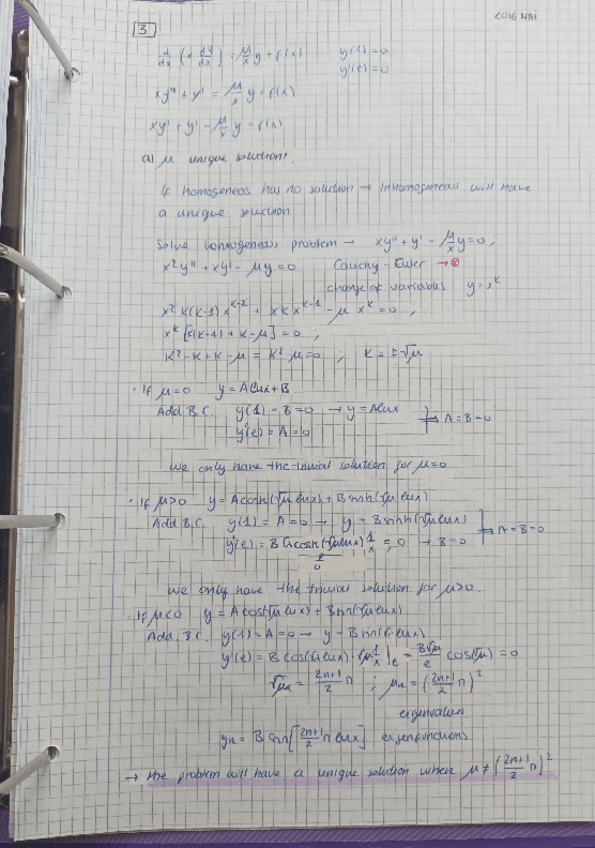 2016 MAI
3
d/dx (x dy/dx) = μ/x y + f(x) y(1)=0
y'(e)=0
xy'' + y' = μ/x y + f(x)
xy'' + y' - μ/x y = f(x)
a) μ unique solution?
If homogeneous has no solution → Inhomogeneous will have
a unique solution
Solve homogeneous problem → xy'' + y' - μ/x y = 0,
x² y'' + xy' - μy = 0 Cauchy-Euler →
change of variables y = x^k
x² k(k-1) x^(k-2) + x k x^(k-1) - μ x^k = 0,
x^k [k(k-1) + k - μ] = 0;
k² - k + k - μ = k² μ = 0 ; k = ±√μ
· If μ=0 y = A lnx + B
Add B.C. y(1) = B = 0 → y = A lnx ⇒ A = B = 0
y'(e) = A = 0
we only have the trivial solution for μ=0
· If μ>0 y = A cosh(√μ lnx) + B sinh(√μ lnx)
Add B.C. y(1) = A = 0 → y = B sinh(√μ lnx) ⇒ A = B = 0
y'(e) = B √μ cosh(√μ lnx) 1/x = 0 → B = 0
≠ 0
we only have the trivial solution for μ>0.
· If μ<0 y = A cos(√μ lnx) + B sin(√μ lnx)
Add. B.C. y(1) = A = 0 → y = B sin(√μ lnx)
y'(e) = B cos(√μ lnx) · √μ 1/x |e = B√μ/e cos(√μ) = 0
√μn = (2n+1)/2 π ; μn = ((2n+1)/2 π)²
eigenvalues
yn = B sin[(2n+1)/2 π lnx] eigenfunctions
→ the problem will have a unique solution when μ ≠ ((2n+1)/2 π)²